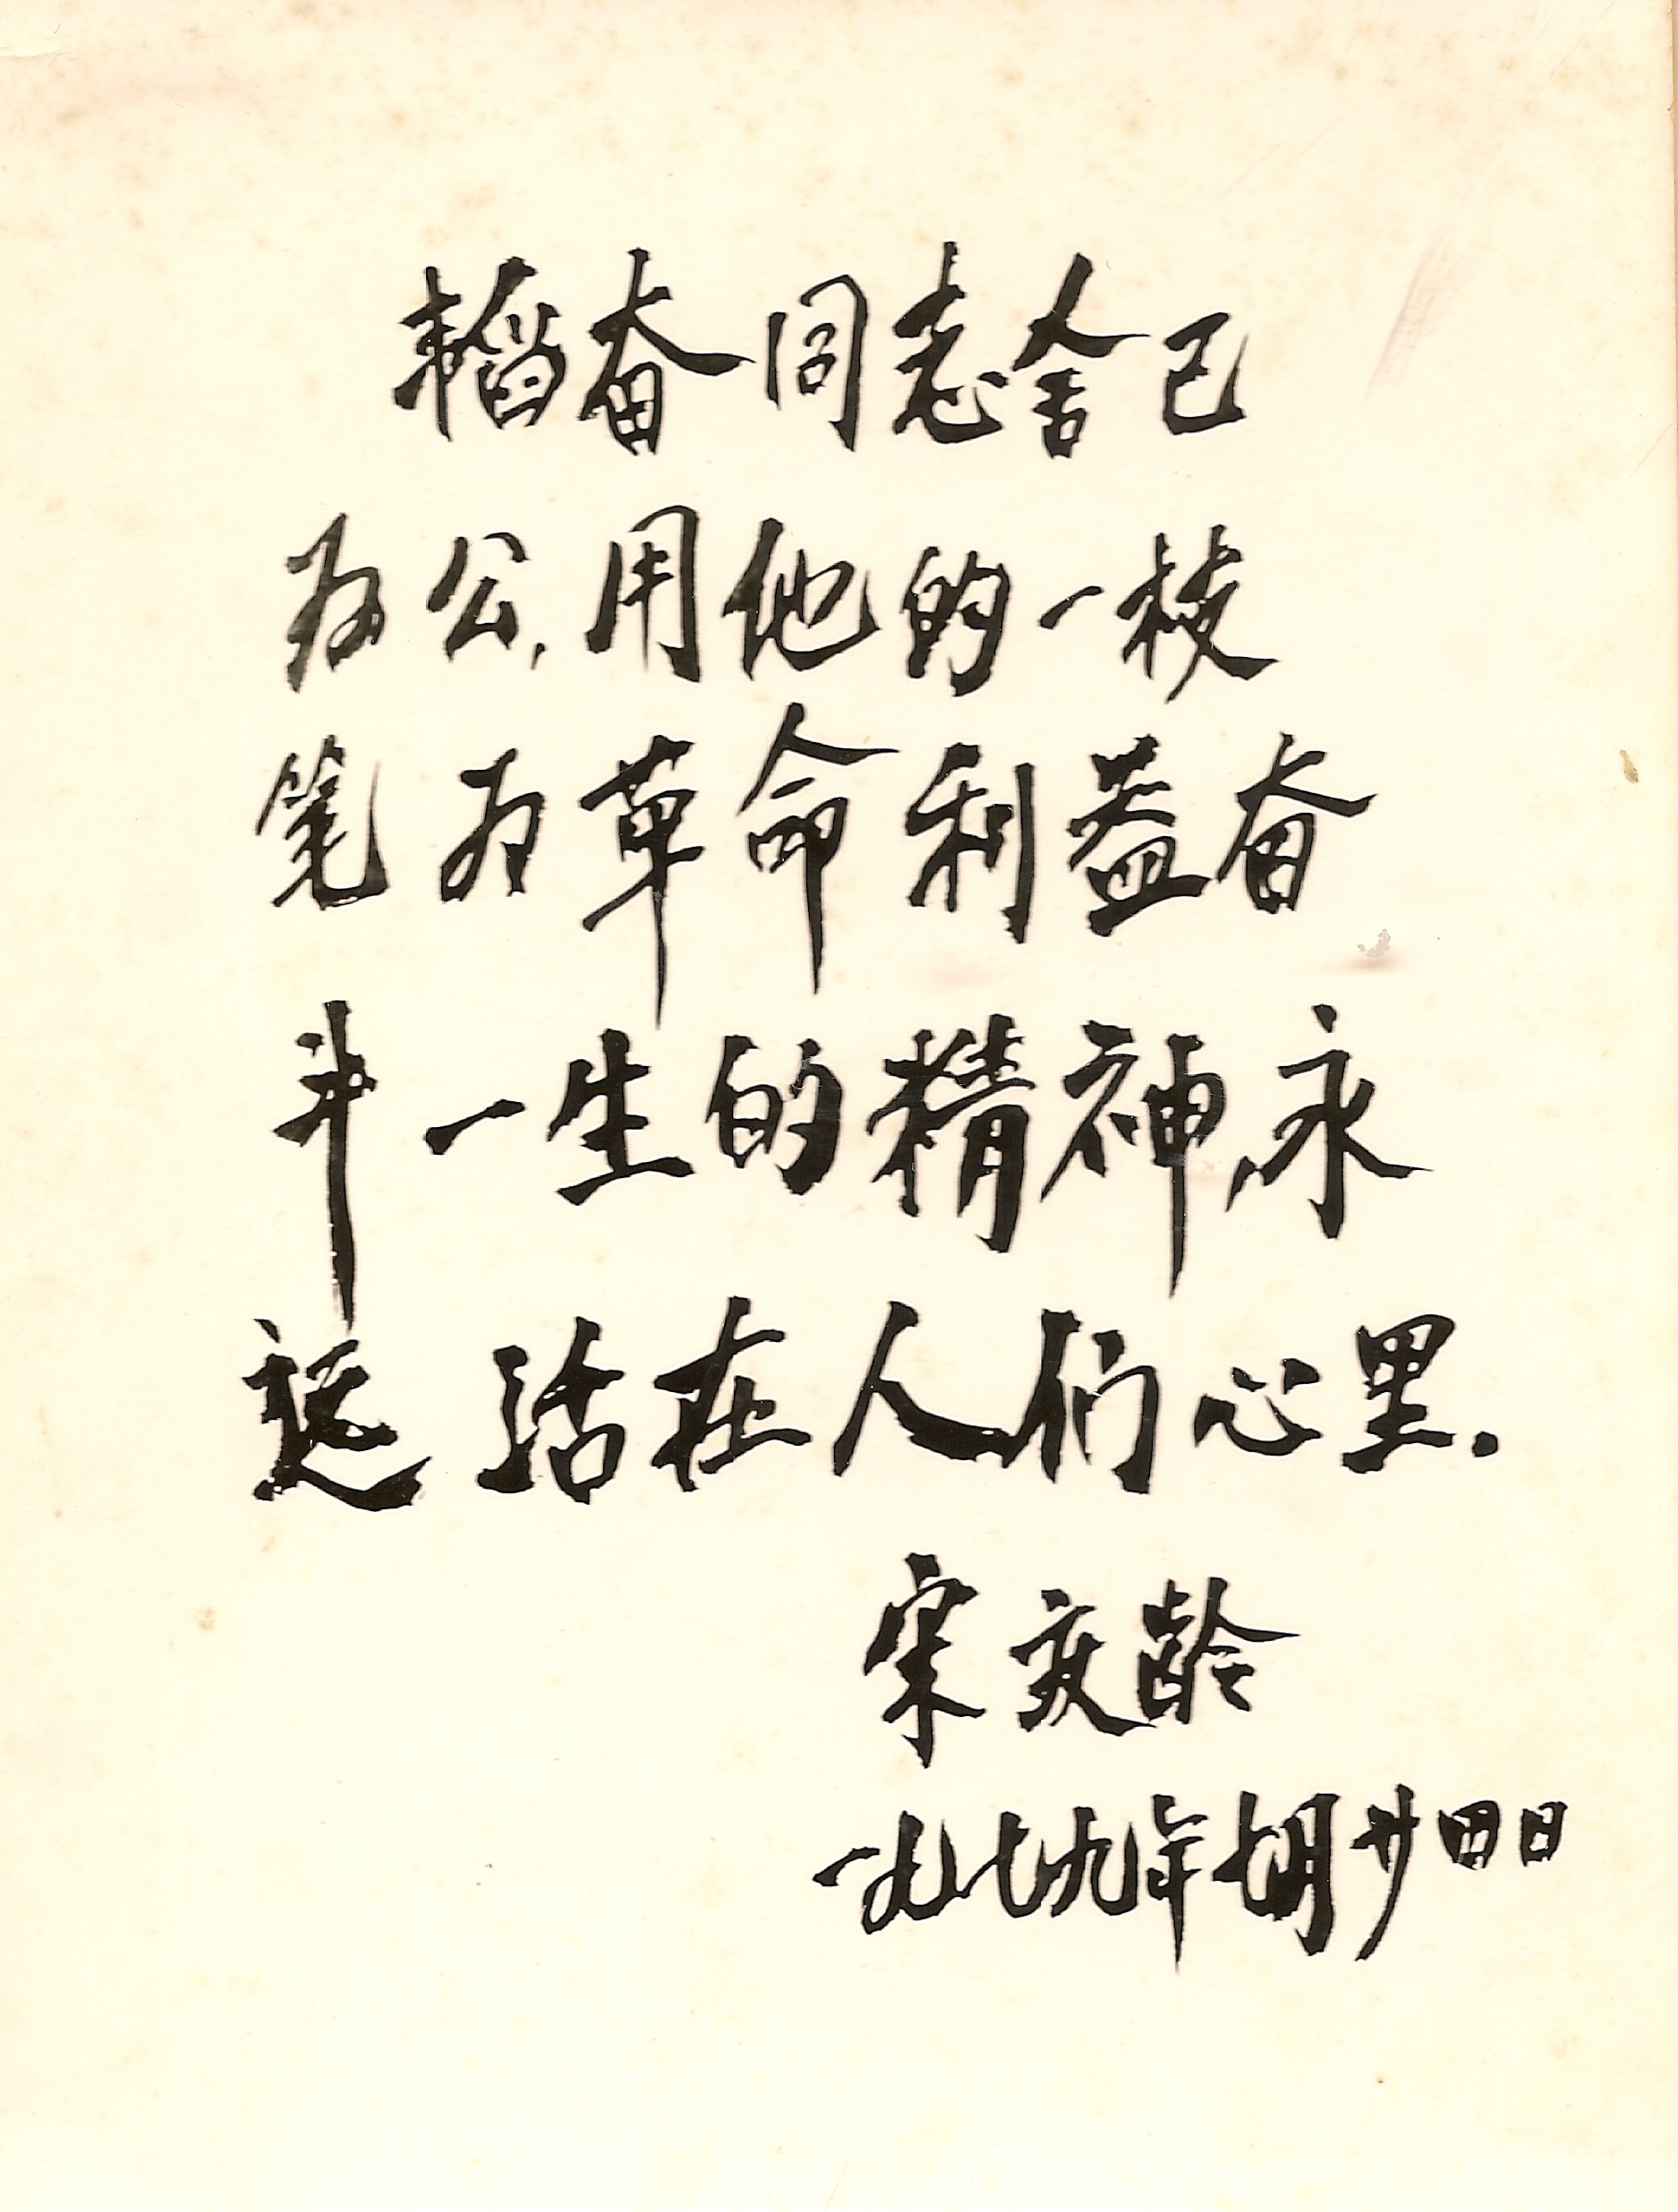 韬奋同志舍己
为公,用他的一枝
笔为革命利益奋
斗一生的精神,永
远活在人们心里.
宋庆龄
一九七九年七月廿四日